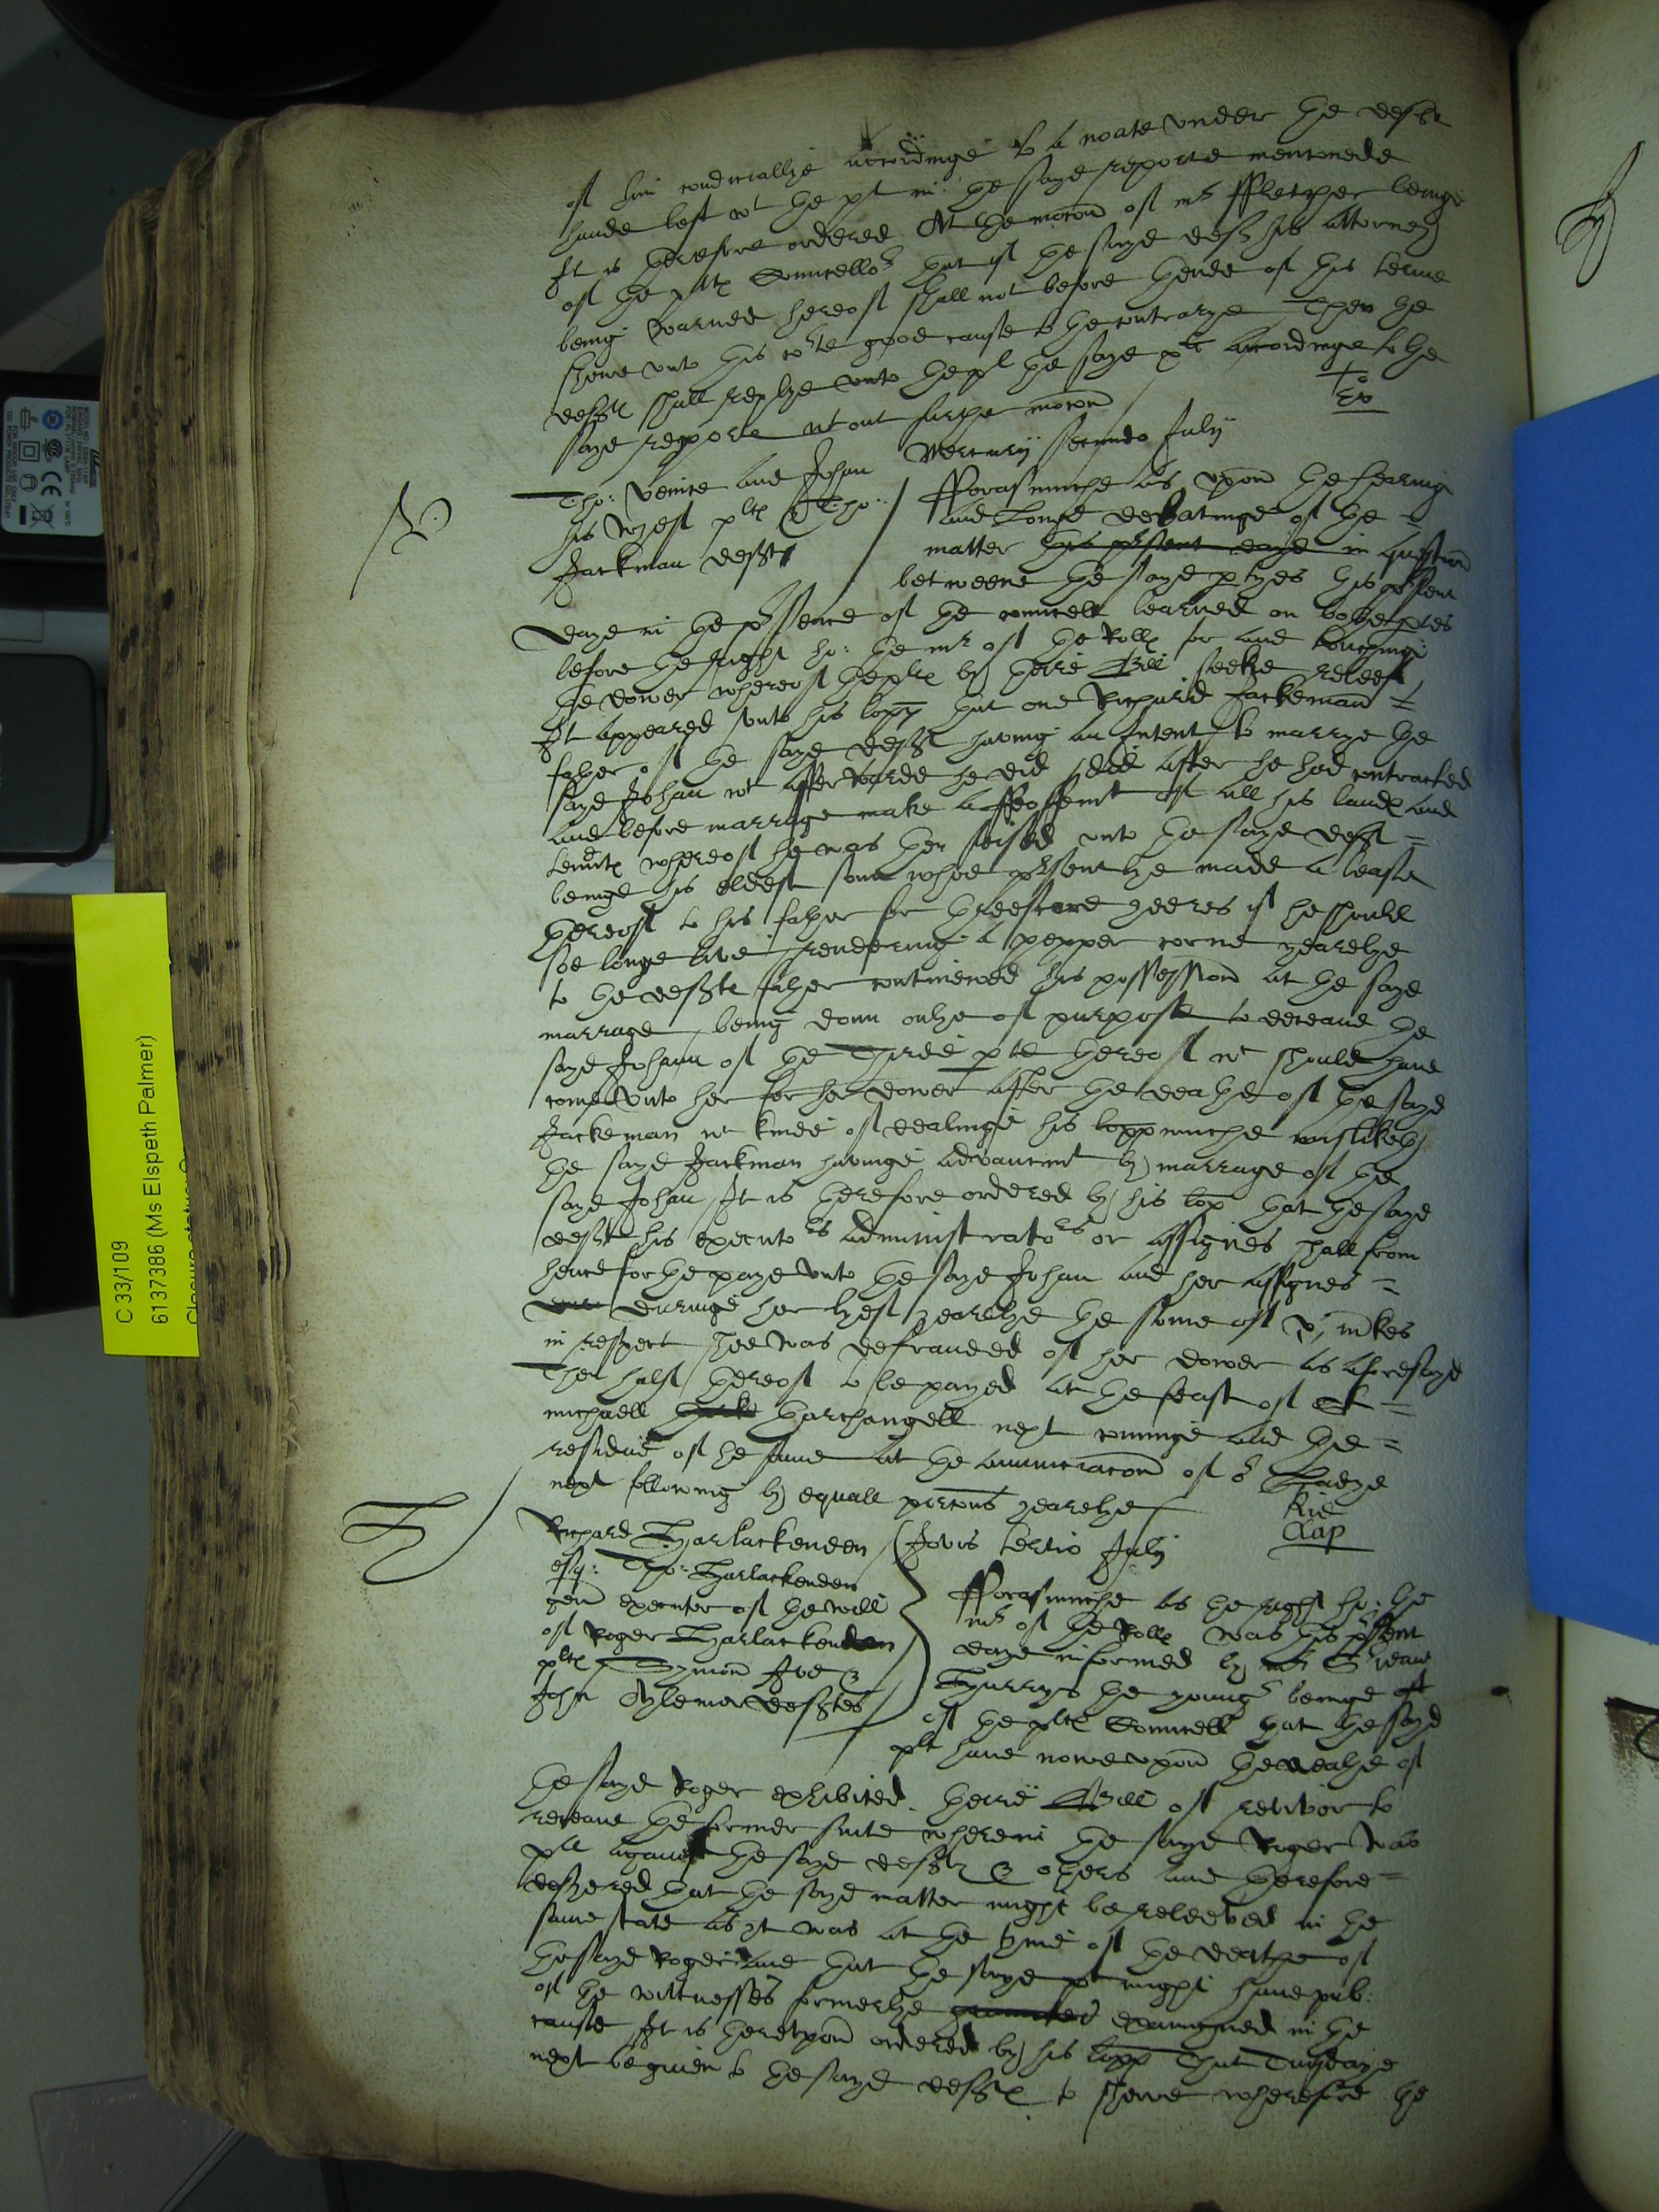 of him iudiciallye accordinge to a noate under the deftes
hande left wt the pl in the sayd reporte mencioned
It is therefore ordered At the mocon of mr Ffletcher beinge
of the pltes Councello that yf the sayd deft his attorney
being warned hereof shall not before thende of this terme
shewe unto this co:te good cause to the contrarye Then the
deftes shall replye unto the pl the sayd accordinge to the
sayd reporte wtout further mocon
Ex
Mercurij secundo Julij
Tho: Venice and Johan
his wyef pltes Tho:
Jackman deft
Fforasmuche as upon the hearing
and Longe debatinge of the
matter this present daye in question
betweene the sayd ptyes this present
daye in the presence of the councell learned on bothe ptes
before the right ho: the mr of the Rolles for and touchinge
the dower whereof the pltes by their Bill seeke releef
It appeared unto his lopp that one Richard Jackeman
father of the sayd deft having an Intent to marrye the
sayd Johan wt afterwards he did did after he had contracted
and before marriage make a ffeoffemt of all his landes and
tentes whereof he was then seised unto the sayd deft
beinge his eldest sonn whoe presentlye made a lease
thereof to his father for threescore yeeres yf he should
soe longe live rendering a pepper corne yearelye
to the deftes father contineued his possession at the sayd
marriage being donn onlye of purpose to deceave the
sayd Johan of the Thirde pte thereof wc should have
come unto her for her dower after the deathe of the sayd
Jackeman wc kinde of dealinge his lopp muche mislikethe
the sayd Jackman havinge advancemt by marriage of the
sayd Johan It is therefore ordered by his lop that the sayd
deft his executors administrators or assignes shall from
henceforthe paye unto the sayd Johan and her assignes
duringe her lyef yearelye the some of mkes
in respect shee was defrauded of her dower as aforesayd
The half thereof to be payed at the feast of St
michaell tharchangell next cominge and the
residue of the same at the annunciacon of or Ladye
next following by equall porcons yearelye
Rid
Cap
Richard Harlackenden
esq: Tho: Harlackenden
gen executor of the will
of Roger Harlackenden
pltes Symon Ive &
John Aylemer deftes
Jovis tertio Julij
Fforasmuche as the right ho: the
mr of the Rolles was this present
daye informed by mr
Harrys the young beinge
of the pltes Councell that the sayd
plt have nowe upon the deathe of
the sayd Roger exhibited their Bill of revivor to
receave the former suite wherein the sayd Roger was
pl against the sayd deftes & others and therefore
desyered that the sayd matter might be releeved in the
same state as yt was at the tyme of the deathe of
the sayd Roger and that the sayd pl might have pub:
of the wittnesses formerlye graunted examyned in the
cause It is thereupon ordered by his lopp That Tuysdaye
next be given to the sayd deftes to shewe wherefore the
C 33/109
6137386 (Ms Elspeth Palmer)